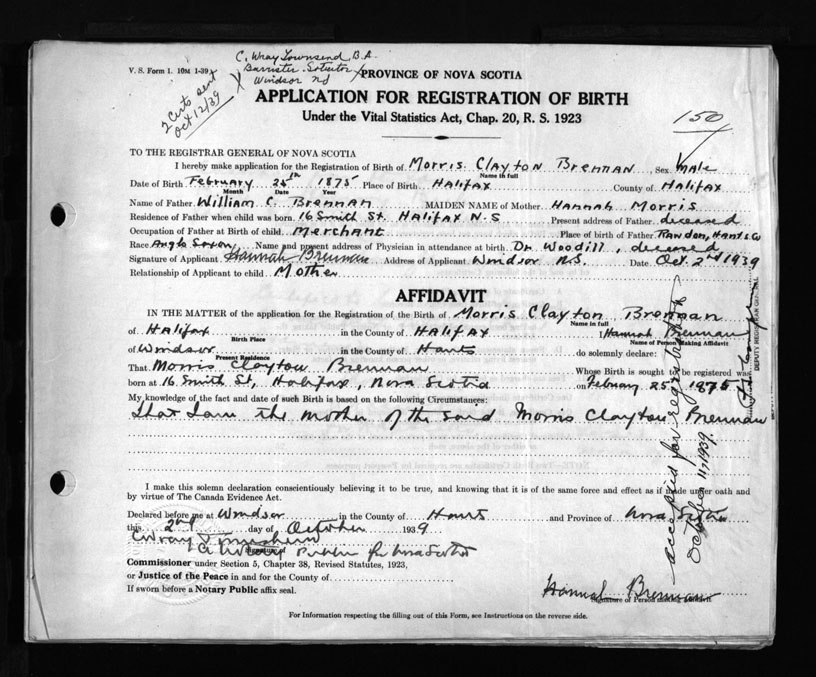 V. S. Form 1. 10M 1-39
C. Wray Townsend, B.A.
Barrister. Solicitor
Windsor NS
2 Certs sent
Oct 12/39
PROVINCE OF NOVA SCOTIA
APPLICATION FOR REGISTRATION OF BIRTH
Under the Vital Statistics Act, Chap. 20, R. S. 1923
150
TO THE REGISTRAR GENERAL OF NOVA SCOTIA
I hereby make application for the Registration of Birth of Morris Clayton Brennan Sex male
Name in full
Date of Birth February 25th 1875 Place of Birth Halifax County of Halifax
Month Date Year
Name of Father William C. Brennan MAIDEN NAME of Mother Hannah Morris
Residence of Father when child was born 16 Smith St. Halifax N.S Present address of Father deceased
Occupation of Father at Birth of child Merchant Place of birth of Father Rawdon, Hants Co
Race Anglo Saxon Name and present address of Physician in attendance at birth Dr Woodill, deceased
Signature of Applicant Hannah Brennan Address of Applicant Windsor N.S. Date Oct. 2nd 1939
Relationship of Applicant to child Mother
AFFIDAVIT
IN THE MATTER of the application for the Registration of the Birth of Morris Clayton Brennan
Name in full
of Halifax in the County of Halifax I Hannah Brennan
Birth Place Name of Person Making Affidavit
of Windsor in the County of Hants do solemnly declare:
Present Residence
That Morris Clayton Brennan Whose Birth is sought to be registered was
born at 16 Smith St, Halifax, Nova Scotia on February 25 1875
My knowledge of the fact and date of such Birth is based on the following Circumstances:
that I am the mother of the said Morris Clayton Brennan
I make this solemn declaration conscientiously believing it to be true, and knowing that it is of the same force and effect as if made under oath and
by virtue of The Canada Evidence Act.
Declared before me at Windsor in the County of Hants and Province of Nova Scotia
this 2nd day of October 1939
C Wray Townshend
A Notary Public for Nova Scotia
Signature of
Commissioner under Section 5, Chapter 38, Revised Statutes, 1923,
or Justice of the Peace in and for the County of
If sworn before a Notary Public affix seal.
Hannah Brennan
Signature of Person making Affidavit
For Information respecting the filling out of this Form, see Instructions on the reverse side.
accepted for registration
October 11, 1939.
DEPUTY REGISTRAR GENERAL